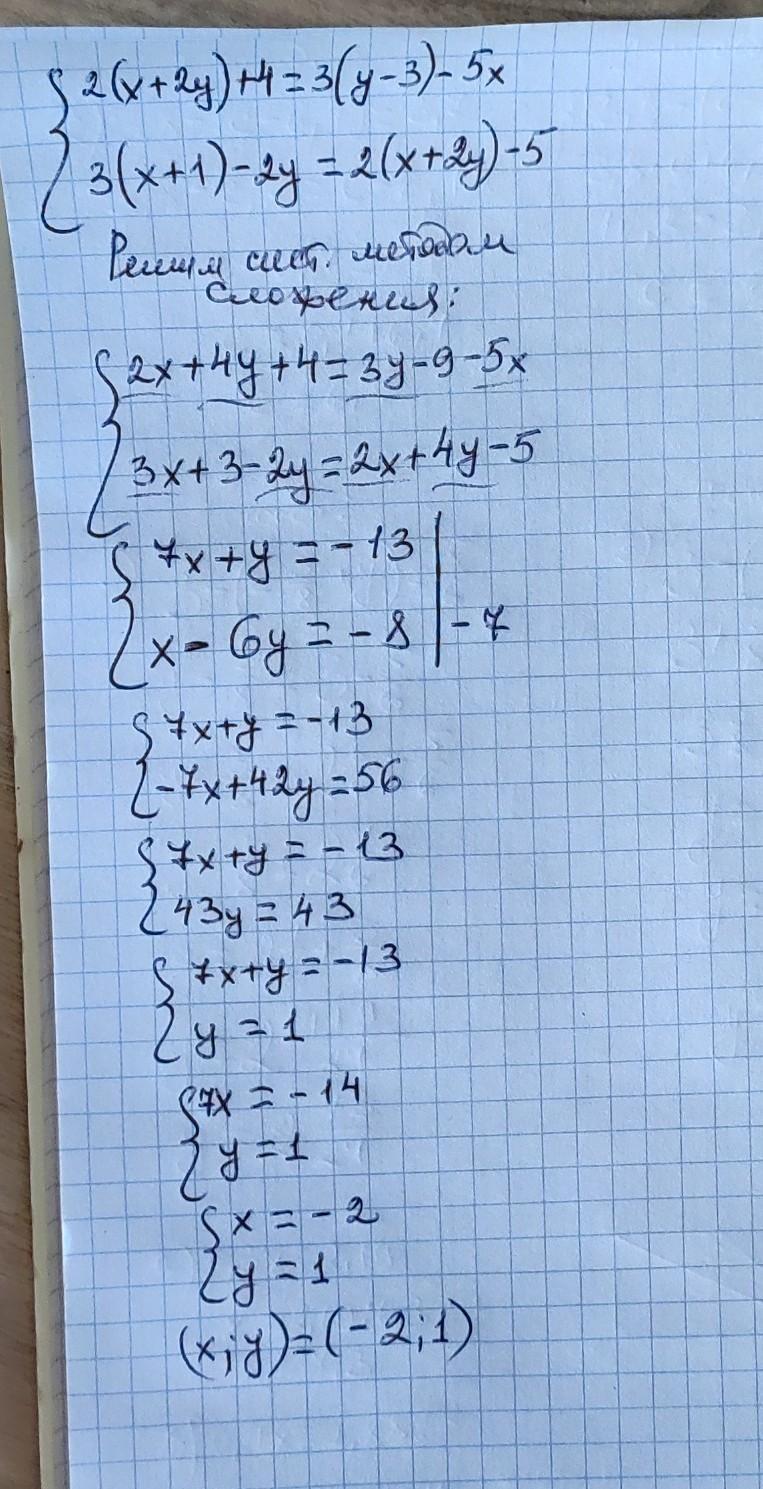 2(x+2y)+4=3(y-3)-5x
3(x+1)-2y=2(x+2y)-5
Решим сист. методом
сложения:
2x+4y+4=3y-9-5x
3x+3-2y=2x+4y-5
7x+y=-13
x-6y=-8 |-7
7x+y=-13
-7x+42y=56
7x+y=-13
43y=43
7x+y=-13
y=1
7x=-14
y=1
x=-2
y=1
(x;y)=(-2;1)